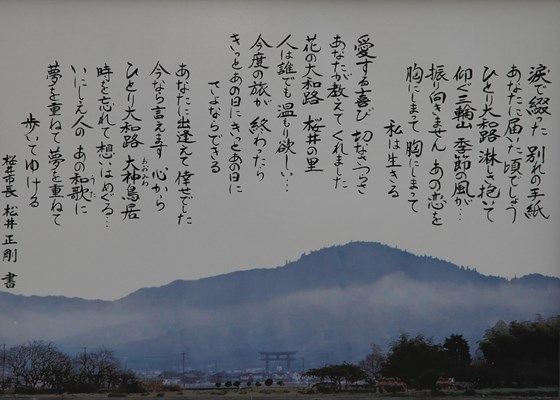 涙で綴った 別れの手紙
あなたに届いた頃でしょう
ひとり大和路 淋しさ抱いて
仰ぐ三輪山 季節の風が…
振り向きません あの恋を
胸にしまって 胸にしまって
私は生きる
愛する喜び 切なさつらさ
あなたが教えてくれました
花の大和路 桜井の里
人は誰でも 温もり欲しい…
今度の旅が 終わったら
きっとあの日に きっとあの日に
さよならできる
あなたに出逢えて 倖せでした
今なら言えます 心から
ひとり大和路 大神鳥居
おおみわ
時を忘れて 想いはめぐる…
いにしえ人の あの和歌に
うた
夢を重ねて 夢を重ねて
歩いてゆける
桜井市長 松井正剛 書